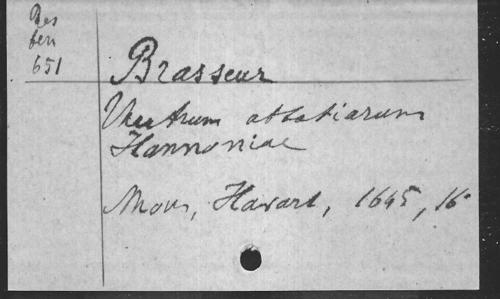 Res
ferr
651
Brasseur
abbatiarum
Hannoniae
Mons, Havart, 1645, 16°